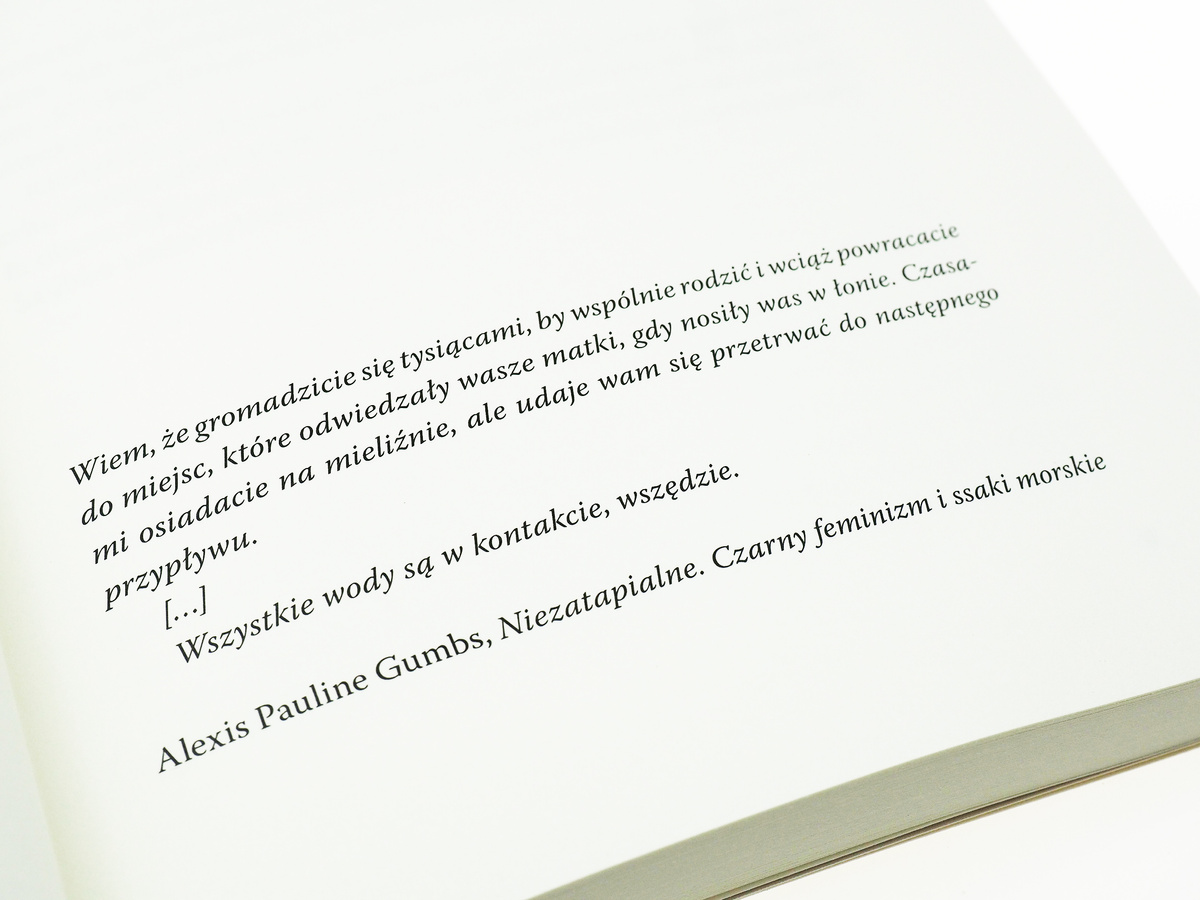 Wiem, że gromadzicie się tysiącami, by wspólnie rodzić i wciąż powracacie
do miejsc, które odwiedzały wasze matki, gdy nosiły was w łonie. Czasa-
mi osiadacie na mieliźnie, ale udaje wam się przetrwać do następnego
przypływu.
[...]
Wszystkie wody są w kontakcie, wszędzie.
Alexis Pauline Gumbs, Niezatapialne. Czarny feminizm i ssaki morskie